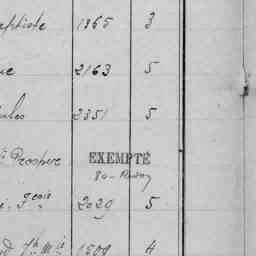 aptiste 1365 3
ue 2163 5
ules 2351 5
Prosper EXEMPTÉ
80-
s. Fçois 2029 5
Jh Mie 1509 4